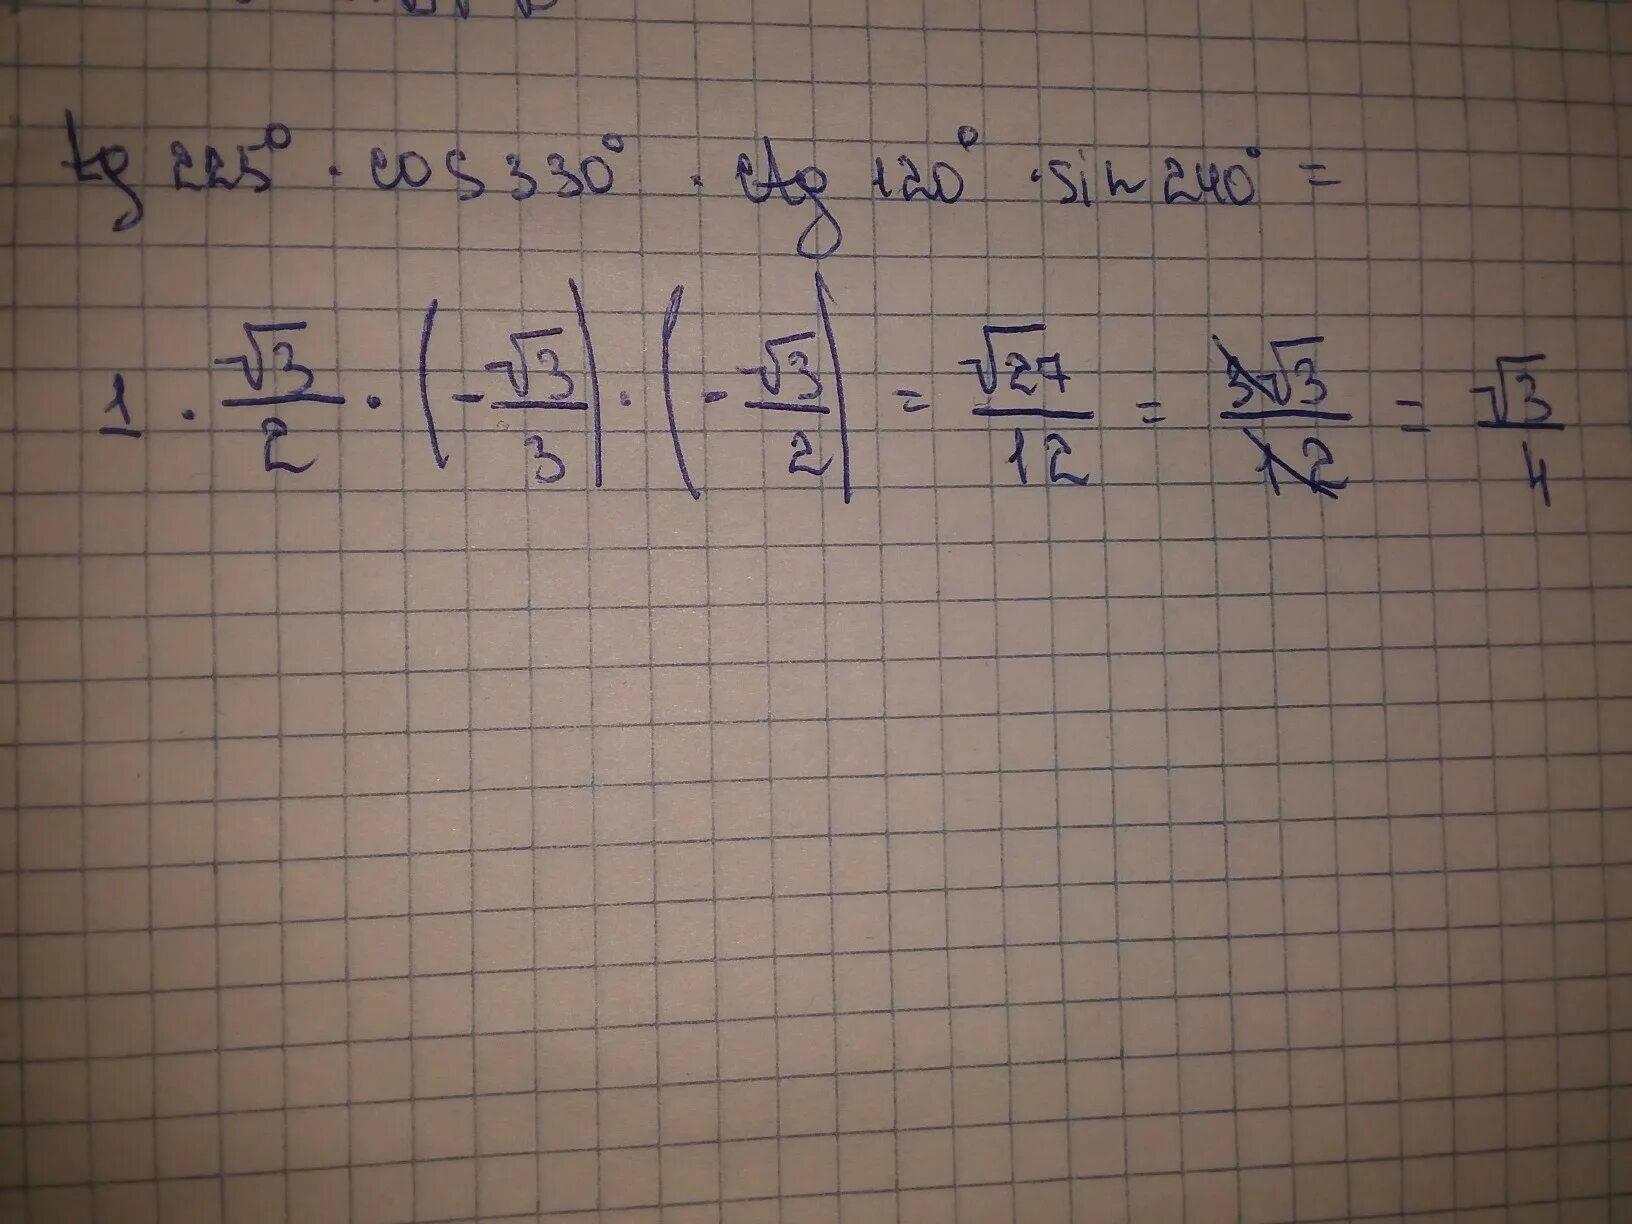 tg 225° · cos 330° · ctg 120° · sin 240° =
1 · √3/2 · (-√3/3) · (-√3/2) = √27/12 = 3√3/12 = √3/4